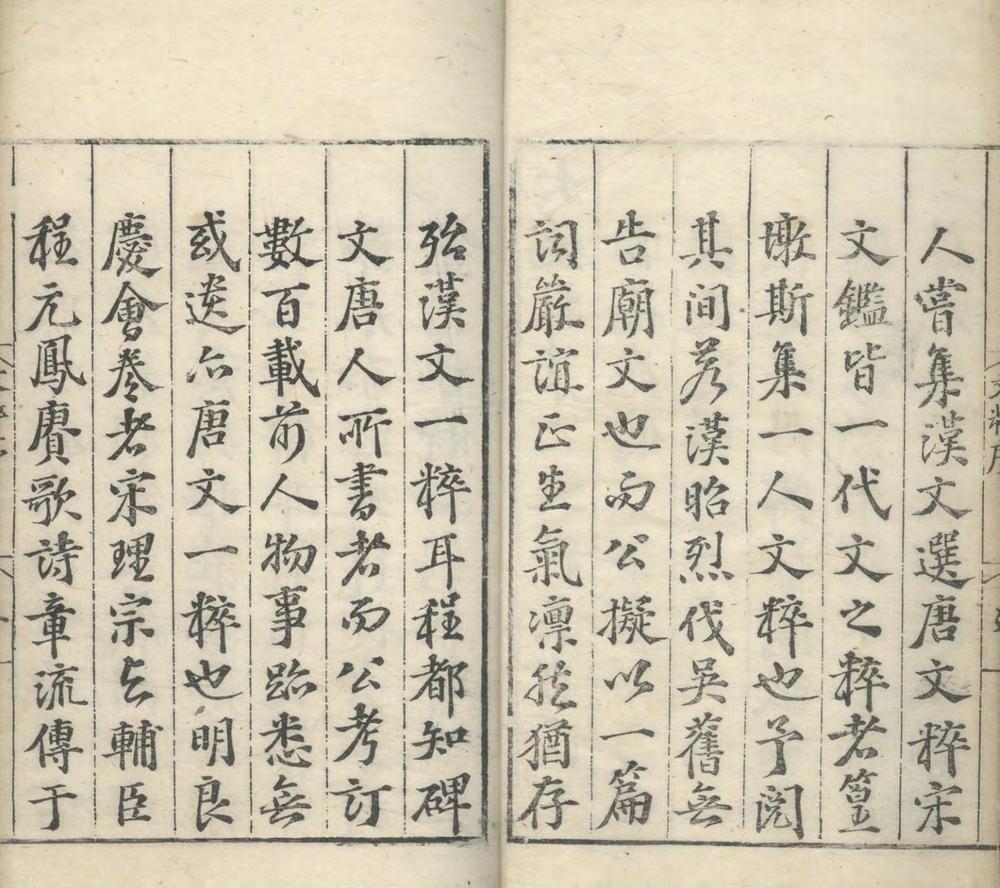 人嘗集漢文選唐文粹宋
文鑑皆一代文之粹者篁
墩斯集一人文粹也予閱
其间若漢昭烈伐吳舊無
告廟文也而公擬以一篇
词嚴誼正生氣凛然猶存
殆漢文一粹耳程都知碑
文唐人所書者而公考訂
數百載前人物事跡悉無
或遺亦唐文一粹也明良
慶會卷者宋理宗与輔臣
程元鳳賡歌詩章流傳于